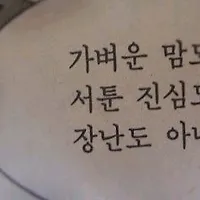 가벼운 맘도
서툰 진심도
장난도 아니